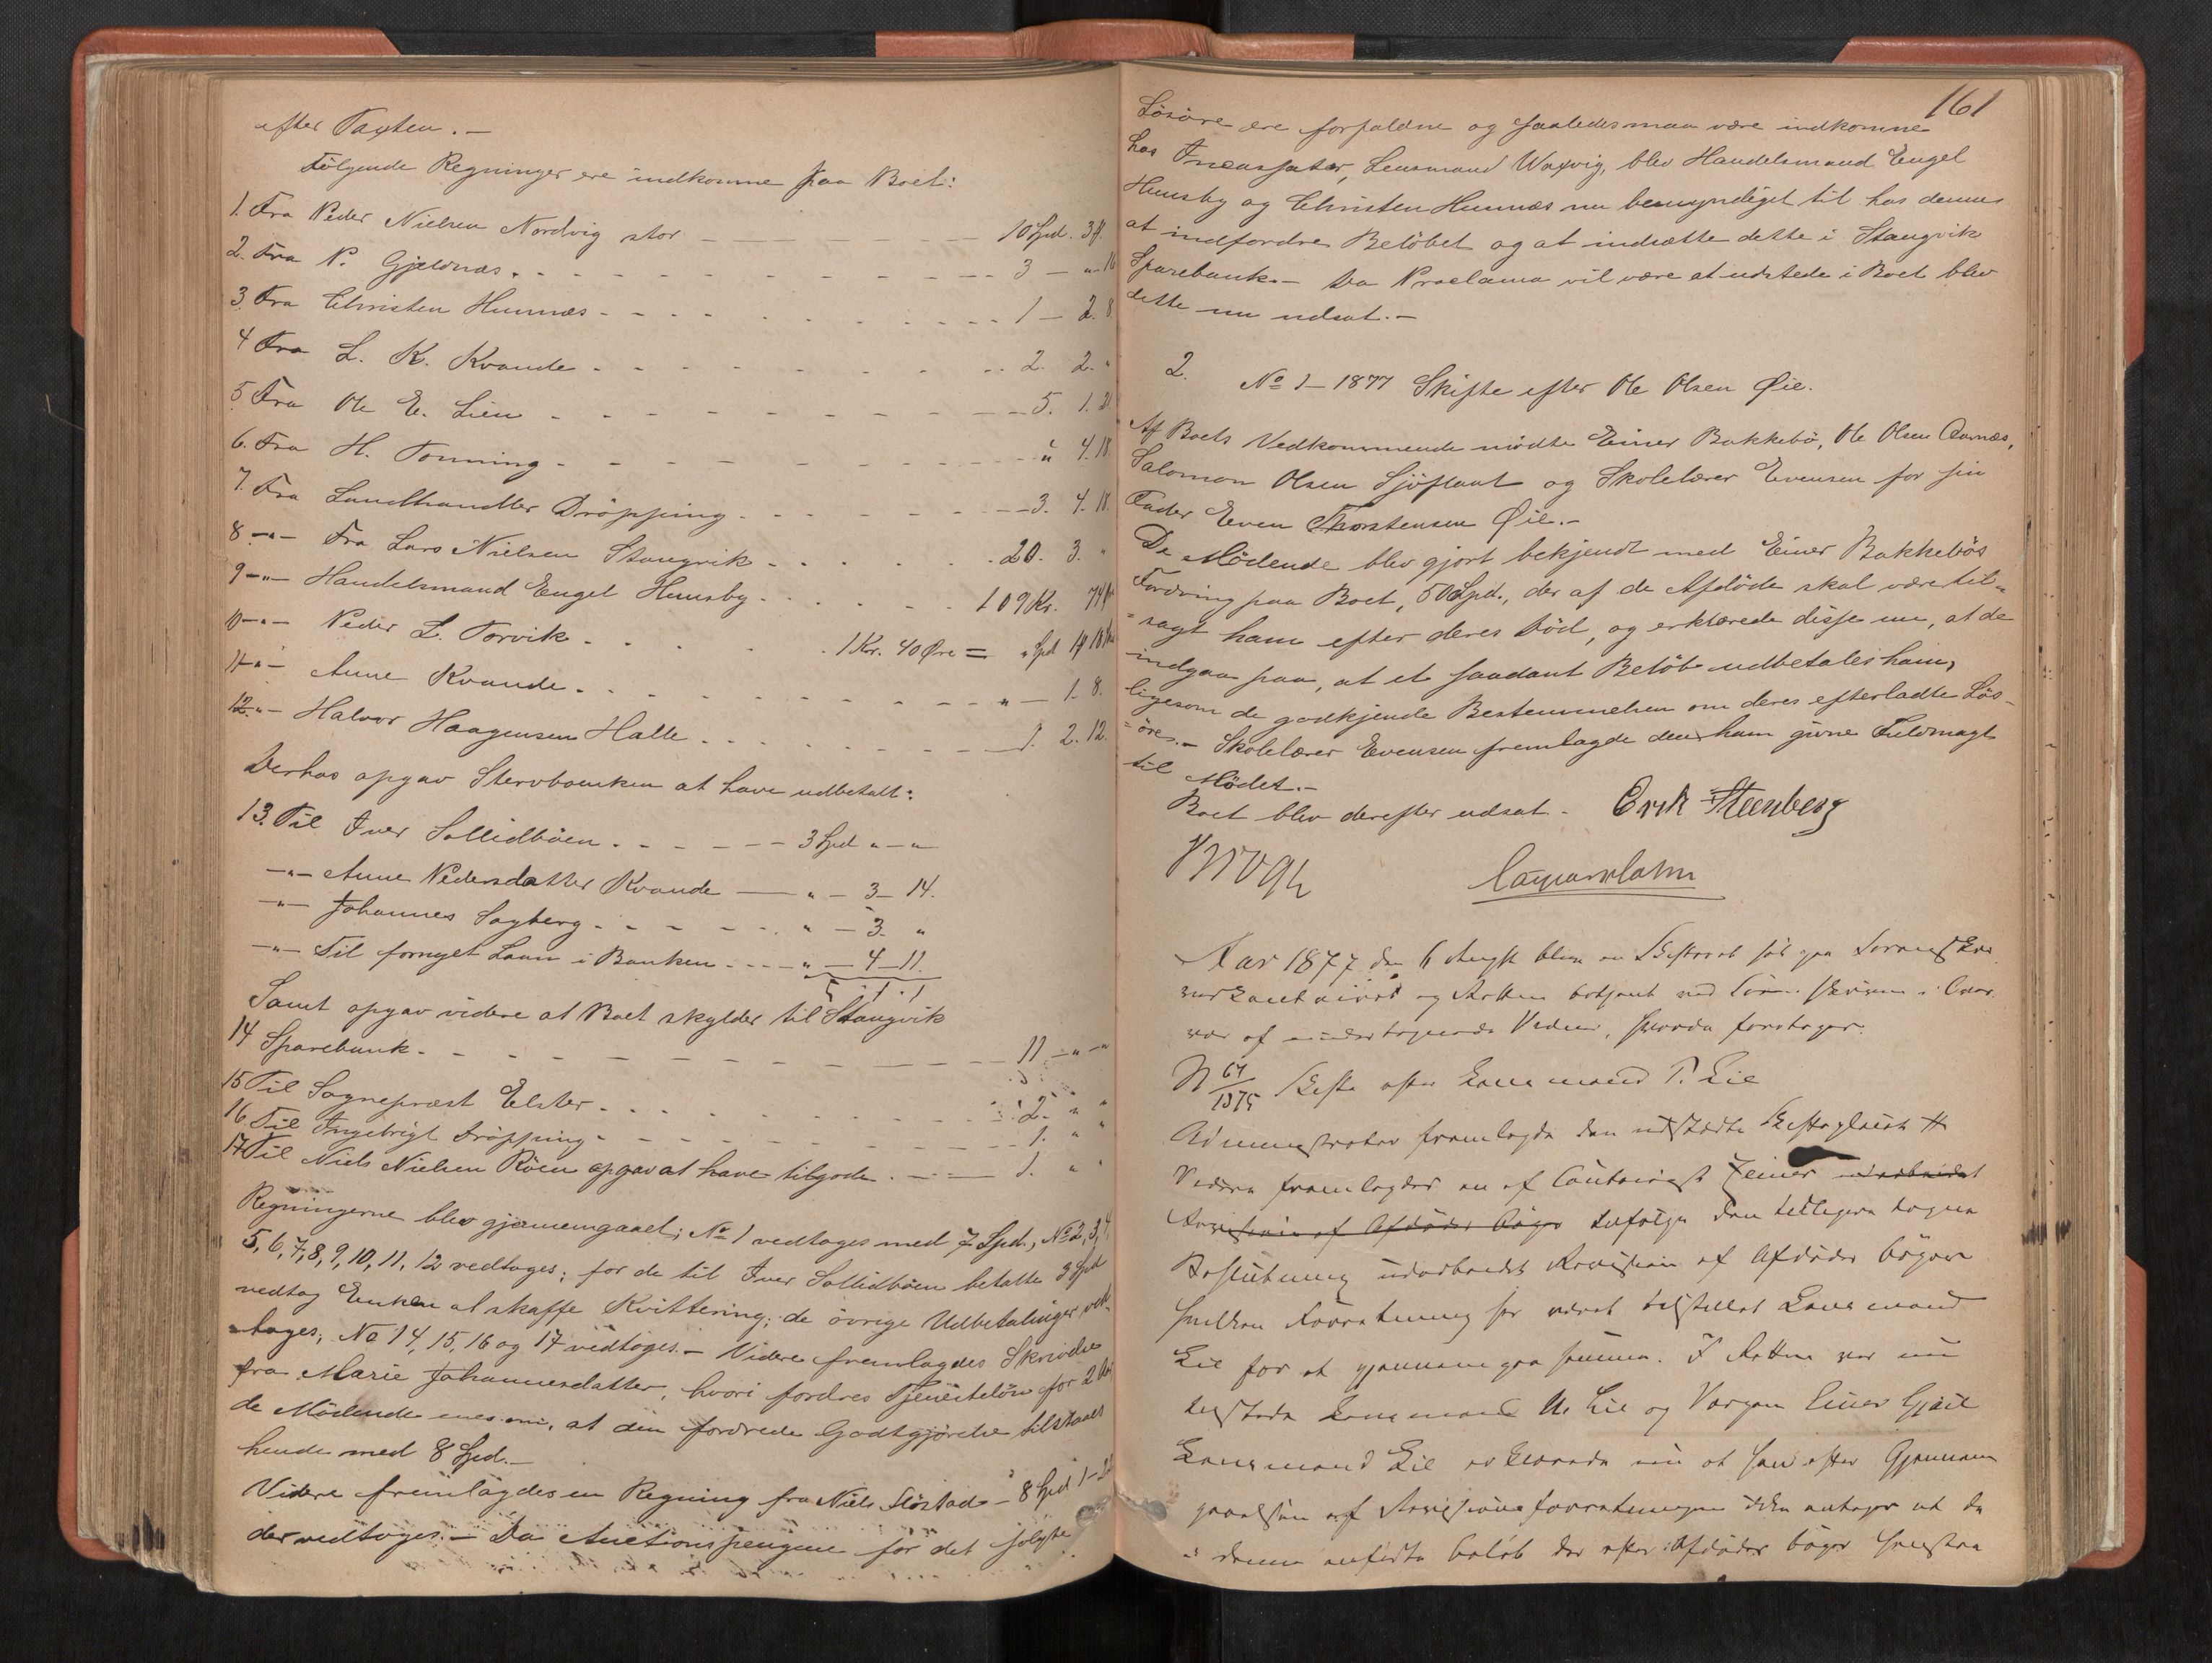 efter Taxten. —
Følgende Regninger ere indkomne paa Boet:
1. Fra Peder Nielsen Nordvig stor — — — 10 Spd. 3
2. Fra P. Gjeldnæs. - - - 3 — " 16
3. Fra Christen Hunnæs - - - 1 — 2. 8
4 Fra L. K. Kvande - - - 2. 2. "
5 Fra Ole E. Lien - - - 5. 1. 21
6. Fra H. Tonning - - - " 4. 18
7. Fra Landhandler Dröpping - - - 3. 4. 18.
8 —"— Fra Lars Nielsen Stangvik - - - 20. 3. "
9 —"— Handelsmand Engel Hunsby - - - 109 Kr. 74
10 —"— Peder L. Torvik - - 1 Kr. 40 Øre = " Spd
11 —"— Anne Kvande - - - " — 1. 8.
12. "— Halvor Haagensen Halle - - - 1. 2. 12.
Derhos opgav Stervboenken at have udbetalt:
13. Til Iver Sollidböen - - - 3 Spd " — "
—"— Anne Pedersdatter Kvande — " — 3 — 14.
—"— Johannes Sagberg - - - " — 3. "
—"— Til fornyet Laan i Banken - - - " — 4 — 11.
5. 1. 1
Samt opgav videre at Boet skylder til Stangvik
14 Sparebank - - - 11 — " — "
15 Til Sognepræst Elster - - - 2. " "
16. Til Ingebrigt Dröpping - - - 1. " "
17 Til Niels Nielsen Röen opgav at have tilgode - — 1. " "
Regningerne blev gjennemgaaet; No 1 vedtoges med 7 Spd., No 2, 3, 4
5, 6, 7, 8, 9, 10, 11, 12 vedtoges; for de til Iver Sollidböen betalte 3 Spd
vedtog Enken at skaffe Kvittering; de övrige Udbetalinger ved-
toges; No 14, 15, 16 og 17 vedtoges. — Videre fremlagdes Skrivelse
fra Marie Johannesdatter, hvori fordres Tjenestelön for 2
de Mödende enes om, at den fordrede Godtgjörelse tilstaaes
hende med 8 Spd. —
Videre fremlagdes en Regning fra Niels — 8 Spd 1 —
der vedtoges. — Da Auctionspengene for det solgte
161
Lösöre ere forfaldne og saaledes maa være indkomne
hos Incassator, Lensmand Waxvig, blev Handelsmand Engel
Hunsby og Christen Hunnæs nu bemyndiget til hos denne
at indfordre Belöbet og at indsætte dette i Stangvik
Sparebank. — Da Proclama vil være at udstede i Boet blev
dette nu udsat. —
2. No 1 — 1877 Skifte efter Ole Olsen Øie.
Af Boets Vedkommende mödte Einer Bakkebö, Ole Olsen
Salomon Olsen Sjöflaat og Skolelærer Evensen for sin
Fader Even Thorstensen Øie. —
De Mödende blev gjort bekjendt med Einer Bakkebös
Fordring paa Boet, 50 Spd., der af de Afdöde skal være til-
sagt ham efter deres Död, og erklærede disse nu, at de
indgaa paa, at et saadant Belöb udbetales ham,
ligesom de godkjende Bestemmelsen om deres efterladte Lös-
öre. — Skolelærer Evensen fremlagde den ham givne Fuldmagt
til Mödet. —
Boet blev derefter udsat. Erik Steenberg
Aar 1877 den 6 August blev en Skifteret sat paa Sorenskri
verkontoiret og Retten betjent ved
var af undertegnede Vidner, hvorda foretoges:
N 64/1875 Skifte efter Lensmand P. Lie
Administrator fremlagde den udstedte
Videre fremlagdes en af Contoirist
ifølge den tidligere tagne
Beslutning udarbeidet Revision af Afdødes bøger
hvilken Forretning har været tilstillet Lensmand
Lie for at gjennemgaa samme. I Retten var nu
tilstede Lensmand Lie og Einer
Lensmand Lie erklærede nu at han efter Gjennem
gaaelsen af Revisionsforretningen ikke antager at de
i denne anførte beløb der efter Afdødes bøger